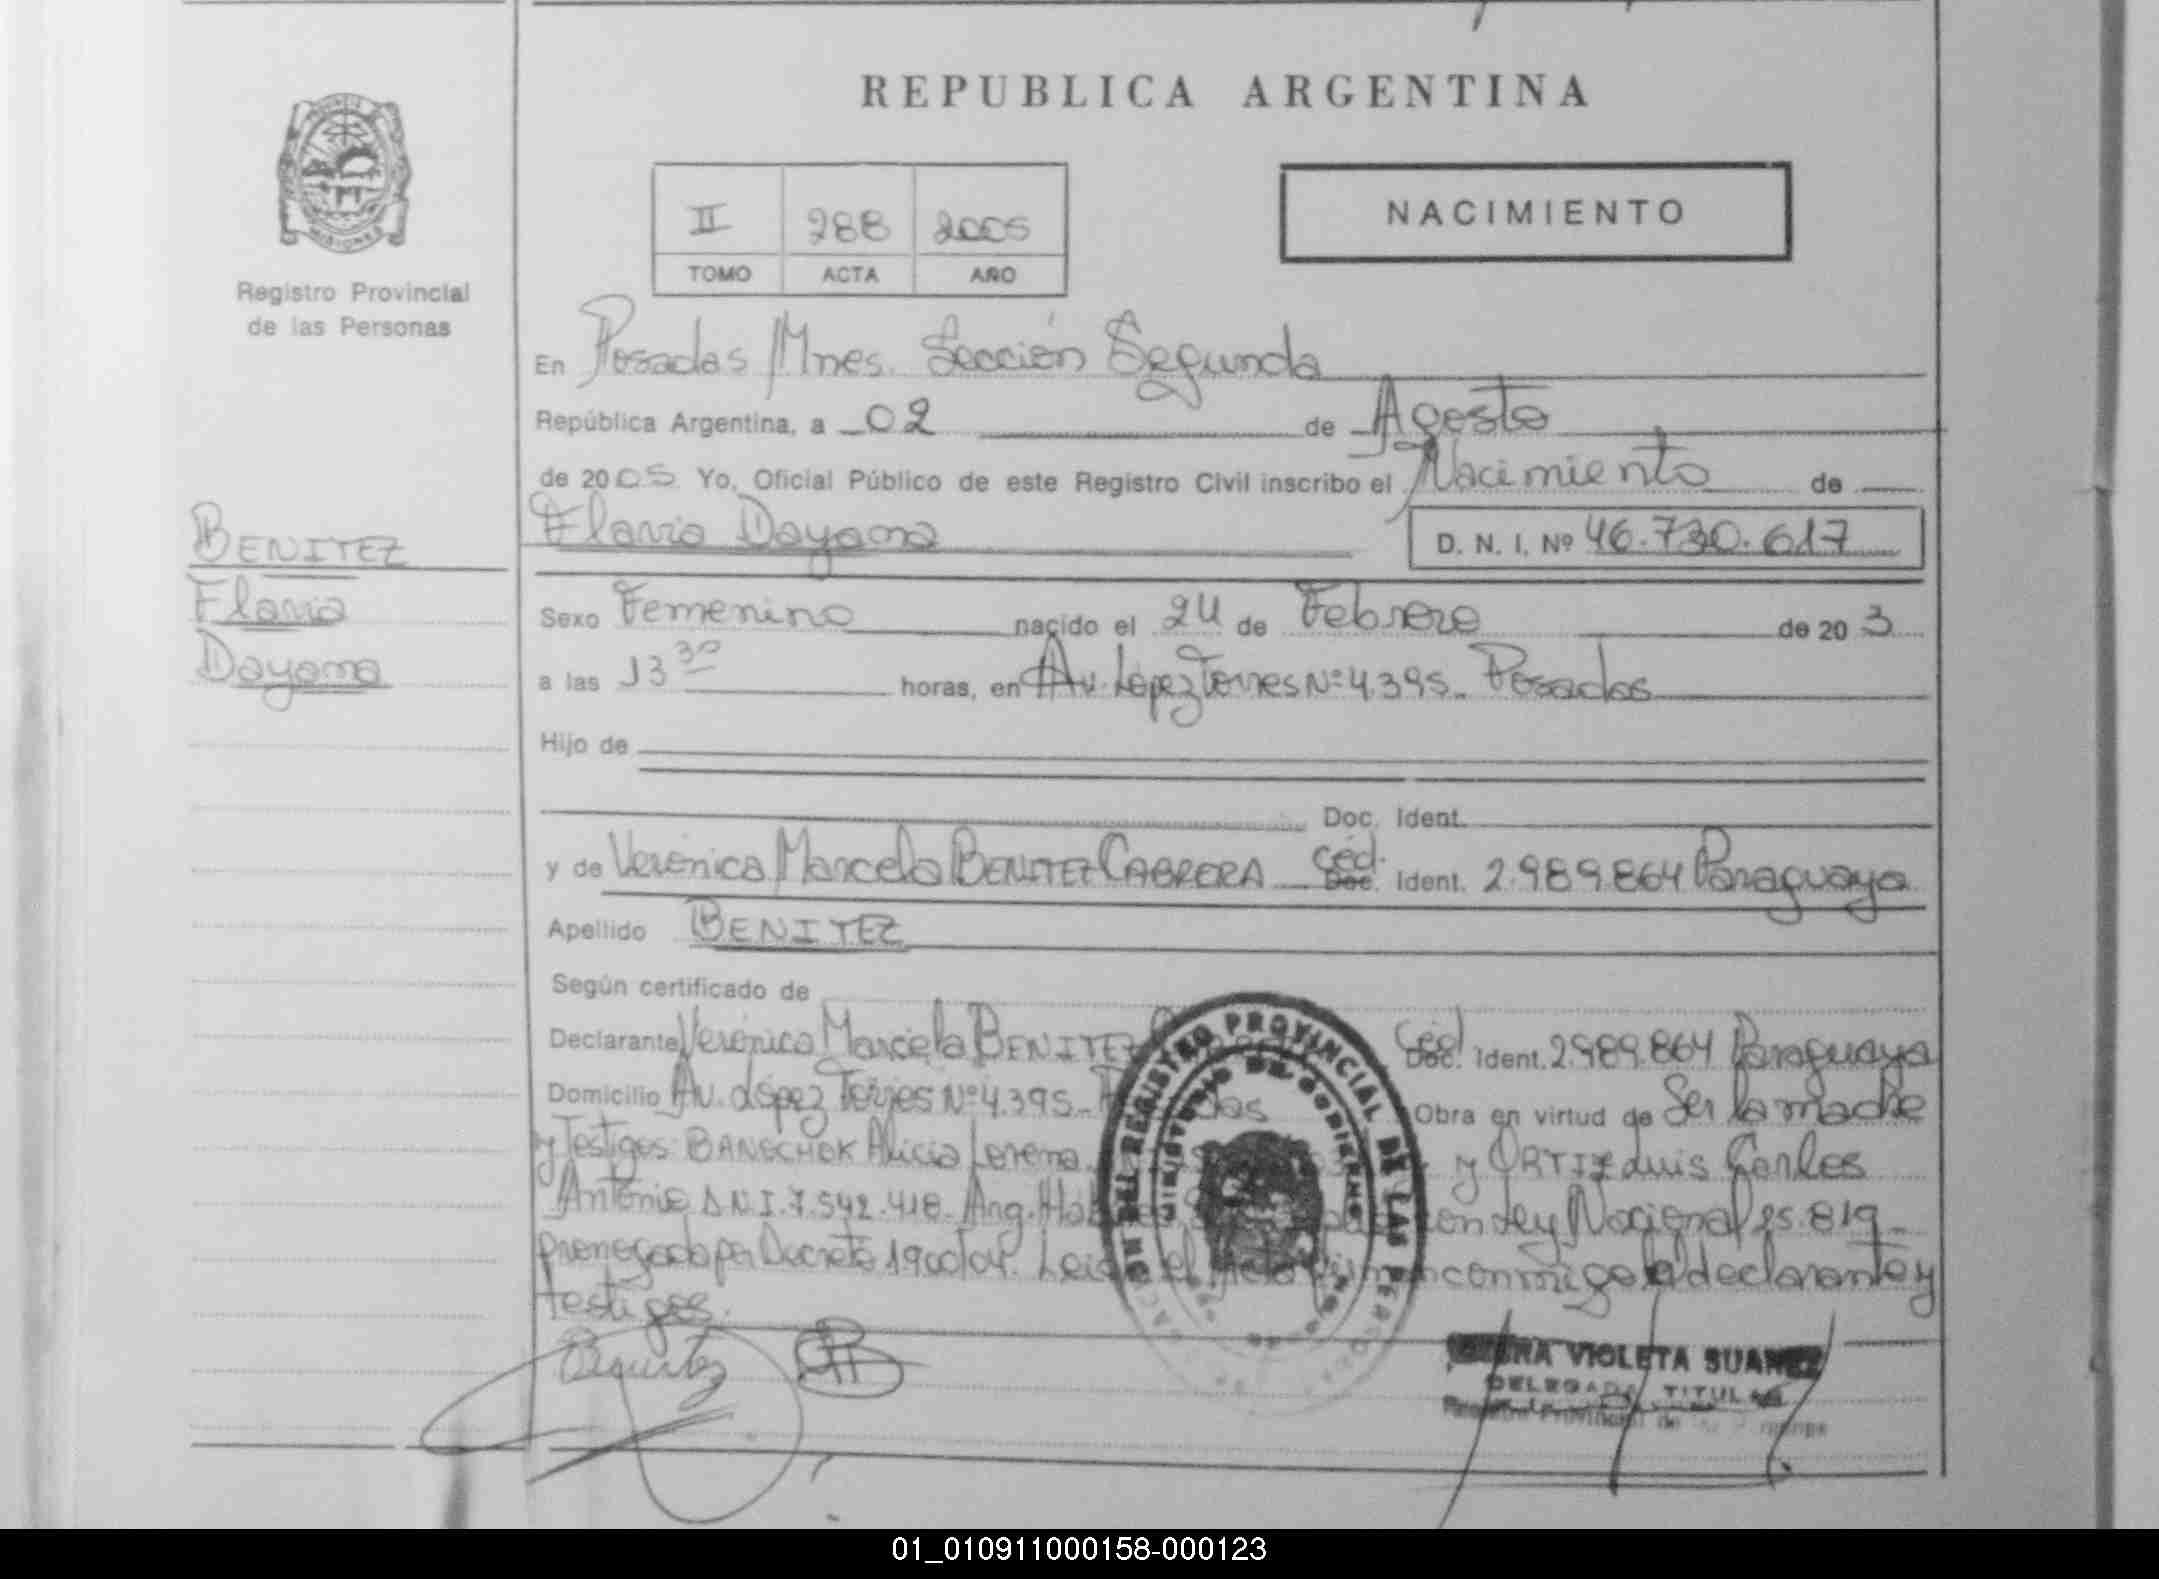 REPUBLICA ARGENTINA
MISIONES
Registro Provincial
de las Personas
II 288 2005
TOMO ACTA AÑO
NACIMIENTO
En Posadas Mnes. Sección Segunda
República Argentina, a 02 de Agosto
de 2005 Yo, Oficial Público de este Registro Civil inscribo el Nacimiento de
Flavia Dayana
D. N. I. Nº 46.730.617
BENITEZ
Flavia
Dayana
Sexo Femenino nacido el 24 de Febrero de 20 3
a las 13 30 horas, en Av. López Torres Nº 4.395. Posadas
Hijo de
Doc. Ident.
y de Verónica Marcela BENITEZ CABRERA Céd. Doc. Ident. 2.989.864 Paraguaya
Apellido BENITEZ
Según certificado de
Declarante Verónica Marcela BENITEZ Céd. Doc. Ident. 2.989.864 Paraguaya
Domicilio Av. López Torres Nº 4.395. Obra en virtud de Ser la madre
y Testigos: Alicia Lorena y ORTIZ Luis Carlos
Antonio D.N.I. 7.542.418. Arg. Ley Nacional 25.819
por Decreto 1900/04. el conmigo declarante y
testigos.
REGISTRO PROVINCIAL DE LAS
MINISTERIO DE GOBIERNO
VIOLETA SUAREZ
DELEGADA TITULAR
Registro Provincial de
01_010911000158-000123